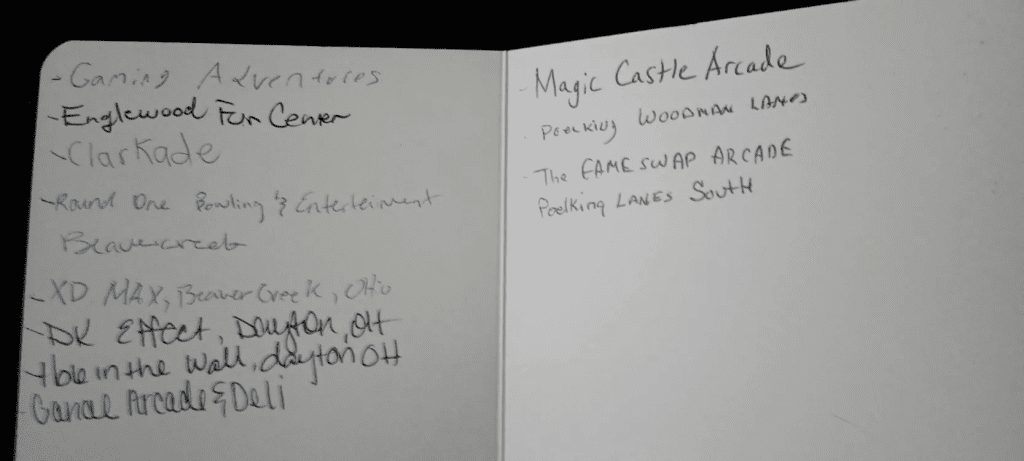 - Gaming Adventures
- Englewood Fun Center
- Clarkade
- Round One Bowling & Entertainment
Beavercreek
- XD MAX, Beaver Creek, Ohio
- DK Effect, Dayton, OH
- Hole in the Wall, dayton OH
- Canal Arcade & Deli
- Magic Castle Arcade
- Poelking WOODMAN LANES
- The GAME SWAP ARCADE
Poelking LANES South